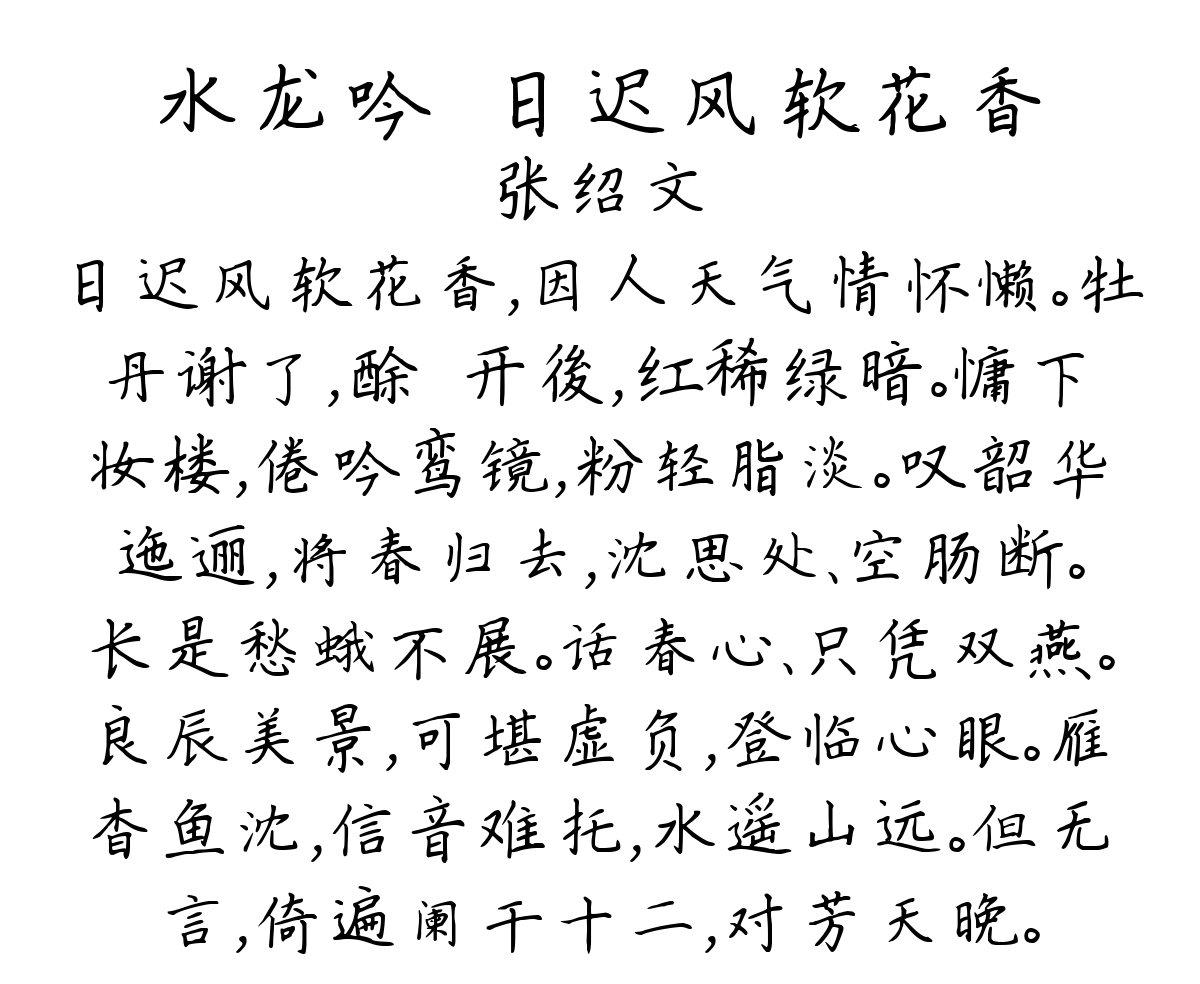 水龙吟 日迟风软花香
张绍文
日迟风软花香,因人天气情怀懒。牡
丹谢了,酴 开後,红稀绿暗。慵下
妆楼,倦吟鸾镜,粉轻脂淡。叹韶华
迤逦,将春归去,沈思处、空肠断。
长是愁蛾不展。话春心、只凭双燕。
良辰美景,可堪虚负,登临心眼。雁
杳鱼沈,信音难托,水遥山远。但无
言,倚遍阑干十二,对芳天晚。